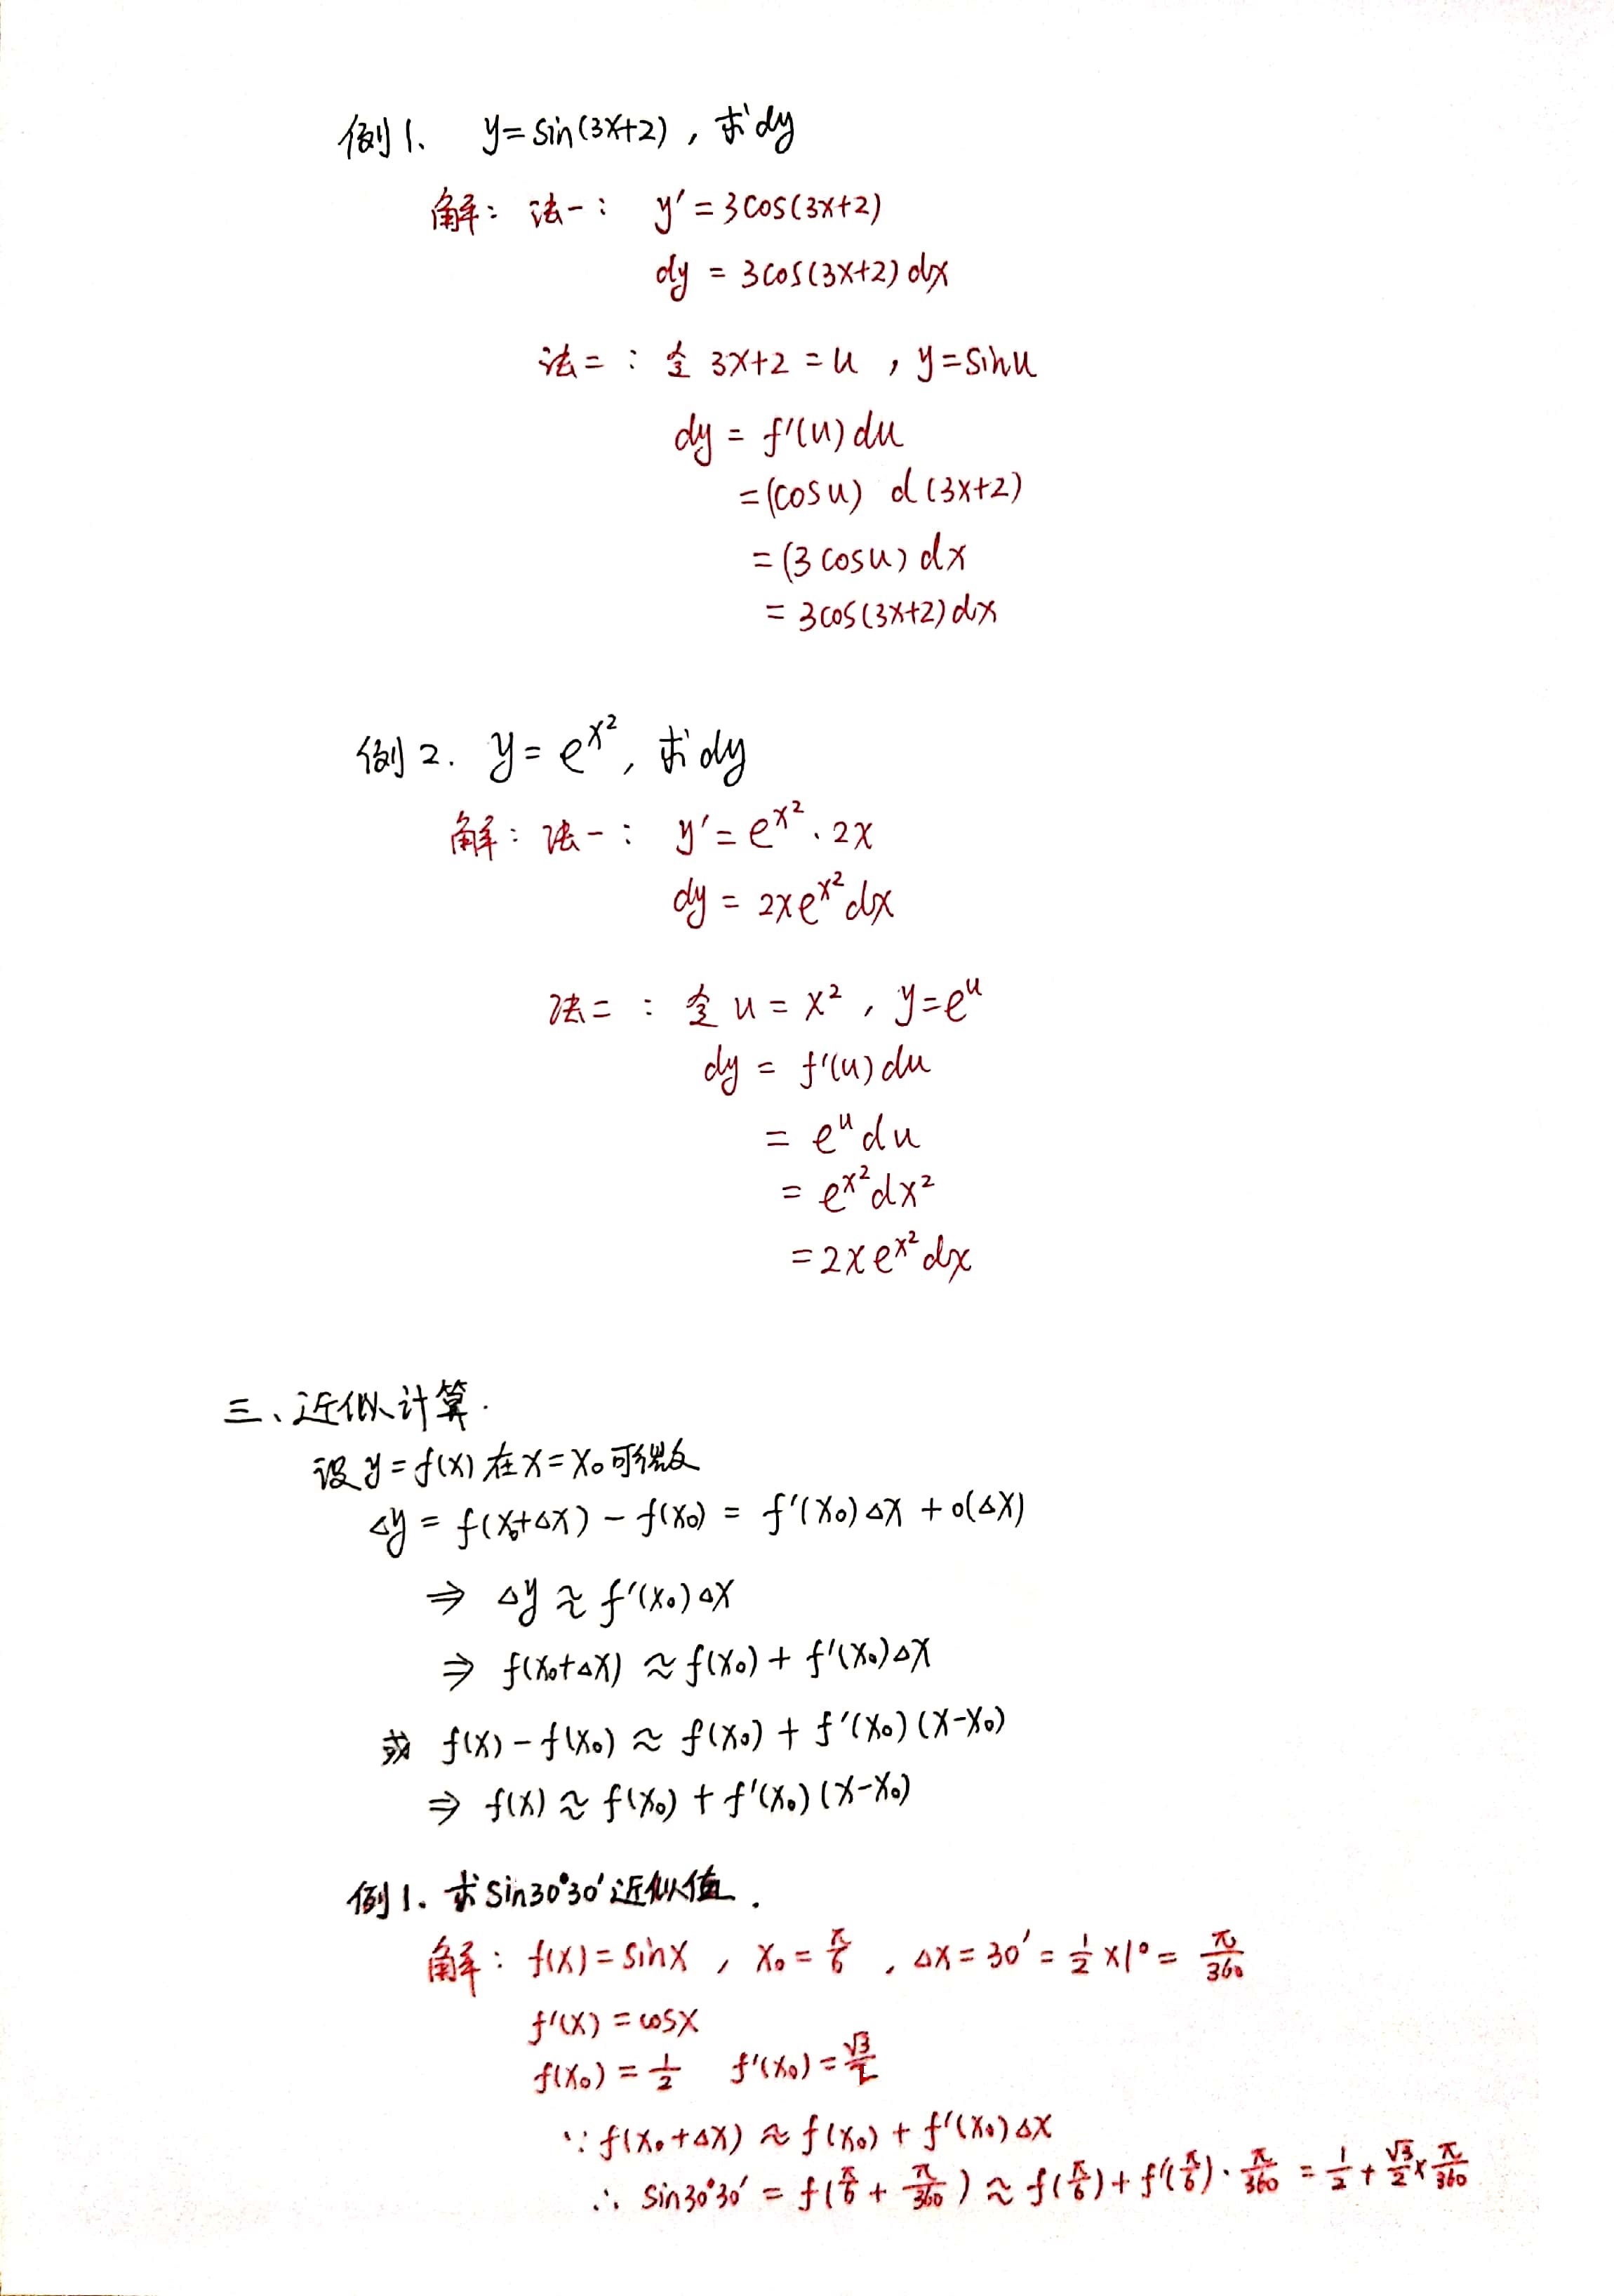 例1、 y=sin(3x+2)，求dy
解：法一：y′=3cos(3x+2)
dy=3cos(3x+2)dx
法二：令 3x+2=u，y=sinu
dy=f′(u)du
=(cosu) d(3x+2)
=(3cosu)dx
=3cos(3x+2)dx
例2. y=e^{x²}，求dy
解：法一：y′=e^{x²}·2x
dy=2xe^{x²}dx
法二：令 u=x²，y=e^u
dy=f′(u)du
=e^u du
=e^{x²}dx²
=2xe^{x²}dx
三、近似计算.
设y=f(x)在x=x₀可微
△y=f(x₀+△x)-f(x₀)=f′(x₀)△x+o(△x)
⇒ △y≈f′(x₀)△x
⇒ f(x₀+△x)≈f(x₀)+f′(x₀)△x
或 f(x)-f(x₀)≈f(x₀)+f′(x₀)(x-x₀)
⇒ f(x)≈f(x₀)+f′(x₀)(x-x₀)
例1. 求sin30°30′近似值.
解：f(x)=sinx，x₀=π/6，△x=30′=1/2×1°=π/360
f′(x)=cosx
f(x₀)=1/2 f′(x₀)=√3/2
∵f(x₀+△x)≈f(x₀)+f′(x₀)△x
∴ sin30°30′=f(π/6+π/360)≈f(π/6)+f′(π/6)·π/360=1/2+√3/2×π/360